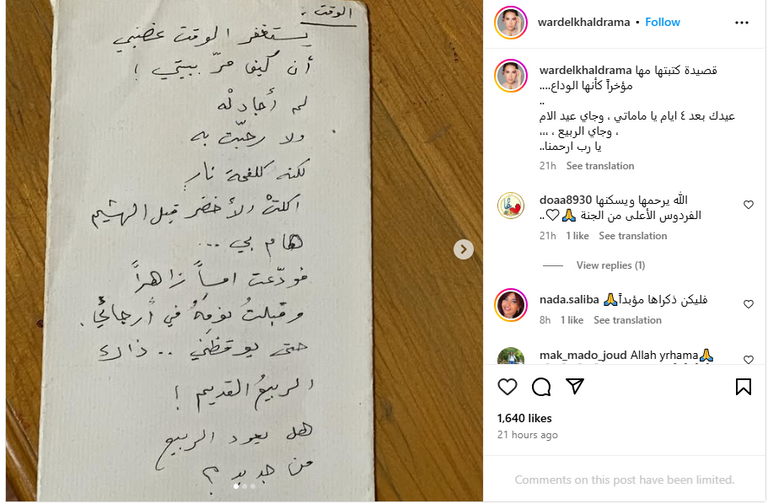 الوقت .
يستغفر الوقت غضبي
أن كيف مرّ ببيتي !
لم أجادلْه
ولا رحبّت به
لكنه كلفحة نارٍ
اكلتْ الأخضر قبل الهشيم
هام بي ...
فودّعت امساً زاهراً
وقبلتُ نومَهُ في أرجائي .
حتى يوقظني .. ذاك
الربيعُ القديم !
هل يعود الربيع
من جديد ؟
wardelkhaldrama • Follow
wardelkhaldrama قصيدة كتبتها مها
مؤخراً كأنها الوداع....
..
عيدك بعد ٤ ايام يا ماماتي ، وجاي عيد الام
، وجاي الربيع ، ...
يا رب ارحمنا..
21h See translation
doaa8930 الله يرحمها ويسكنها
الفردوس الأعلى من الجنة 🙏🤍..
21h 1 like See translation
View replies (1)
nada.saliba فليكن ذكراها مؤبداً🙏
8h 1 like See translation
mak_mado_joud Allah yrhama🙏
1,640 likes
21 hours ago
Comments on this post have been limited.